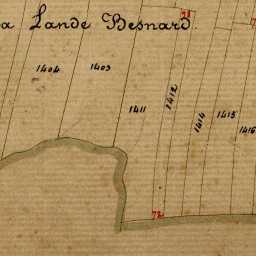 a Lande Besnard
1404
1403
1411
1412
1414
1415
1416
72